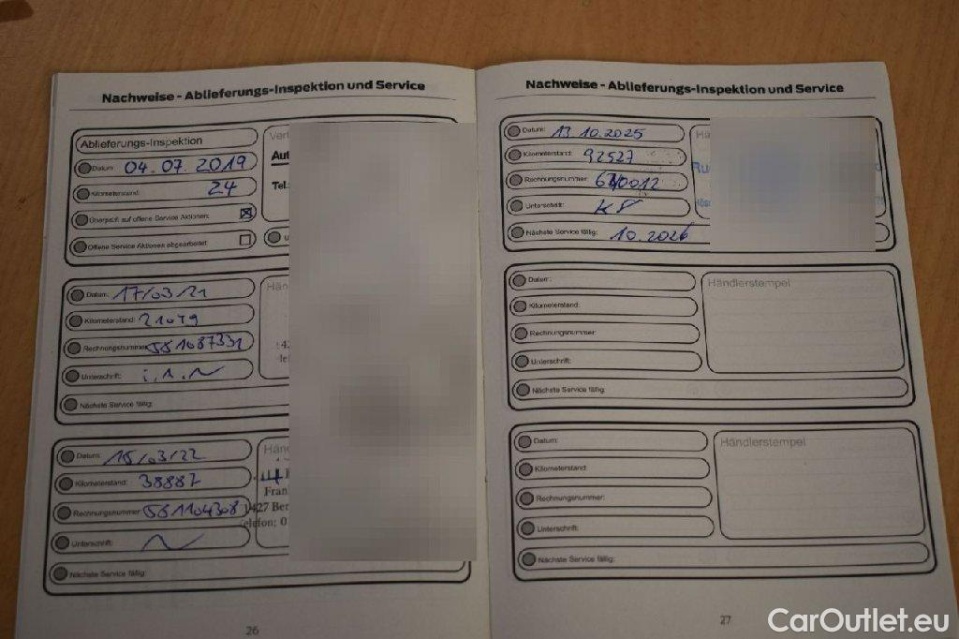 Nachweise - Ablieferungs-Inspektion und Service
Ablieferungs-Inspektion
Datum: 04.07.2019
Kilometerstand: 24
Überprüft auf offene Service Aktionen:
Offene Service Aktionen abgearbeitet
Aut
Tel.:
Datum: 17/03/21
Kilometerstand: 21079
Rechnungsnummer: 581087331
Unterschrift:
Nächste Service fällig:
Hän
Datum: 15/03/22
Kilometerstand: 38887
Rechnungsnummer: 581104308
Unterschrift:
Nächste Service fällig:
Hän
Fran
1427 Ber
elefon: 0
26
Nachweise - Ablieferungs-Inspektion und Service
Datum: 13.10.2025
Kilometerstand: 92527
Rechnungsnummer:
Unterschrift:
Nächste Service fällig: 10.2026
Datum:
Kilometerstand:
Rechnungsnummer:
Unterschrift:
Nächste Service fällig:
Händlerstempel
Datum:
Kilometerstand:
Rechnungsnummer:
Unterschrift:
Nächste Service fällig:
Händlerstempel
27
CarOutlet.eu